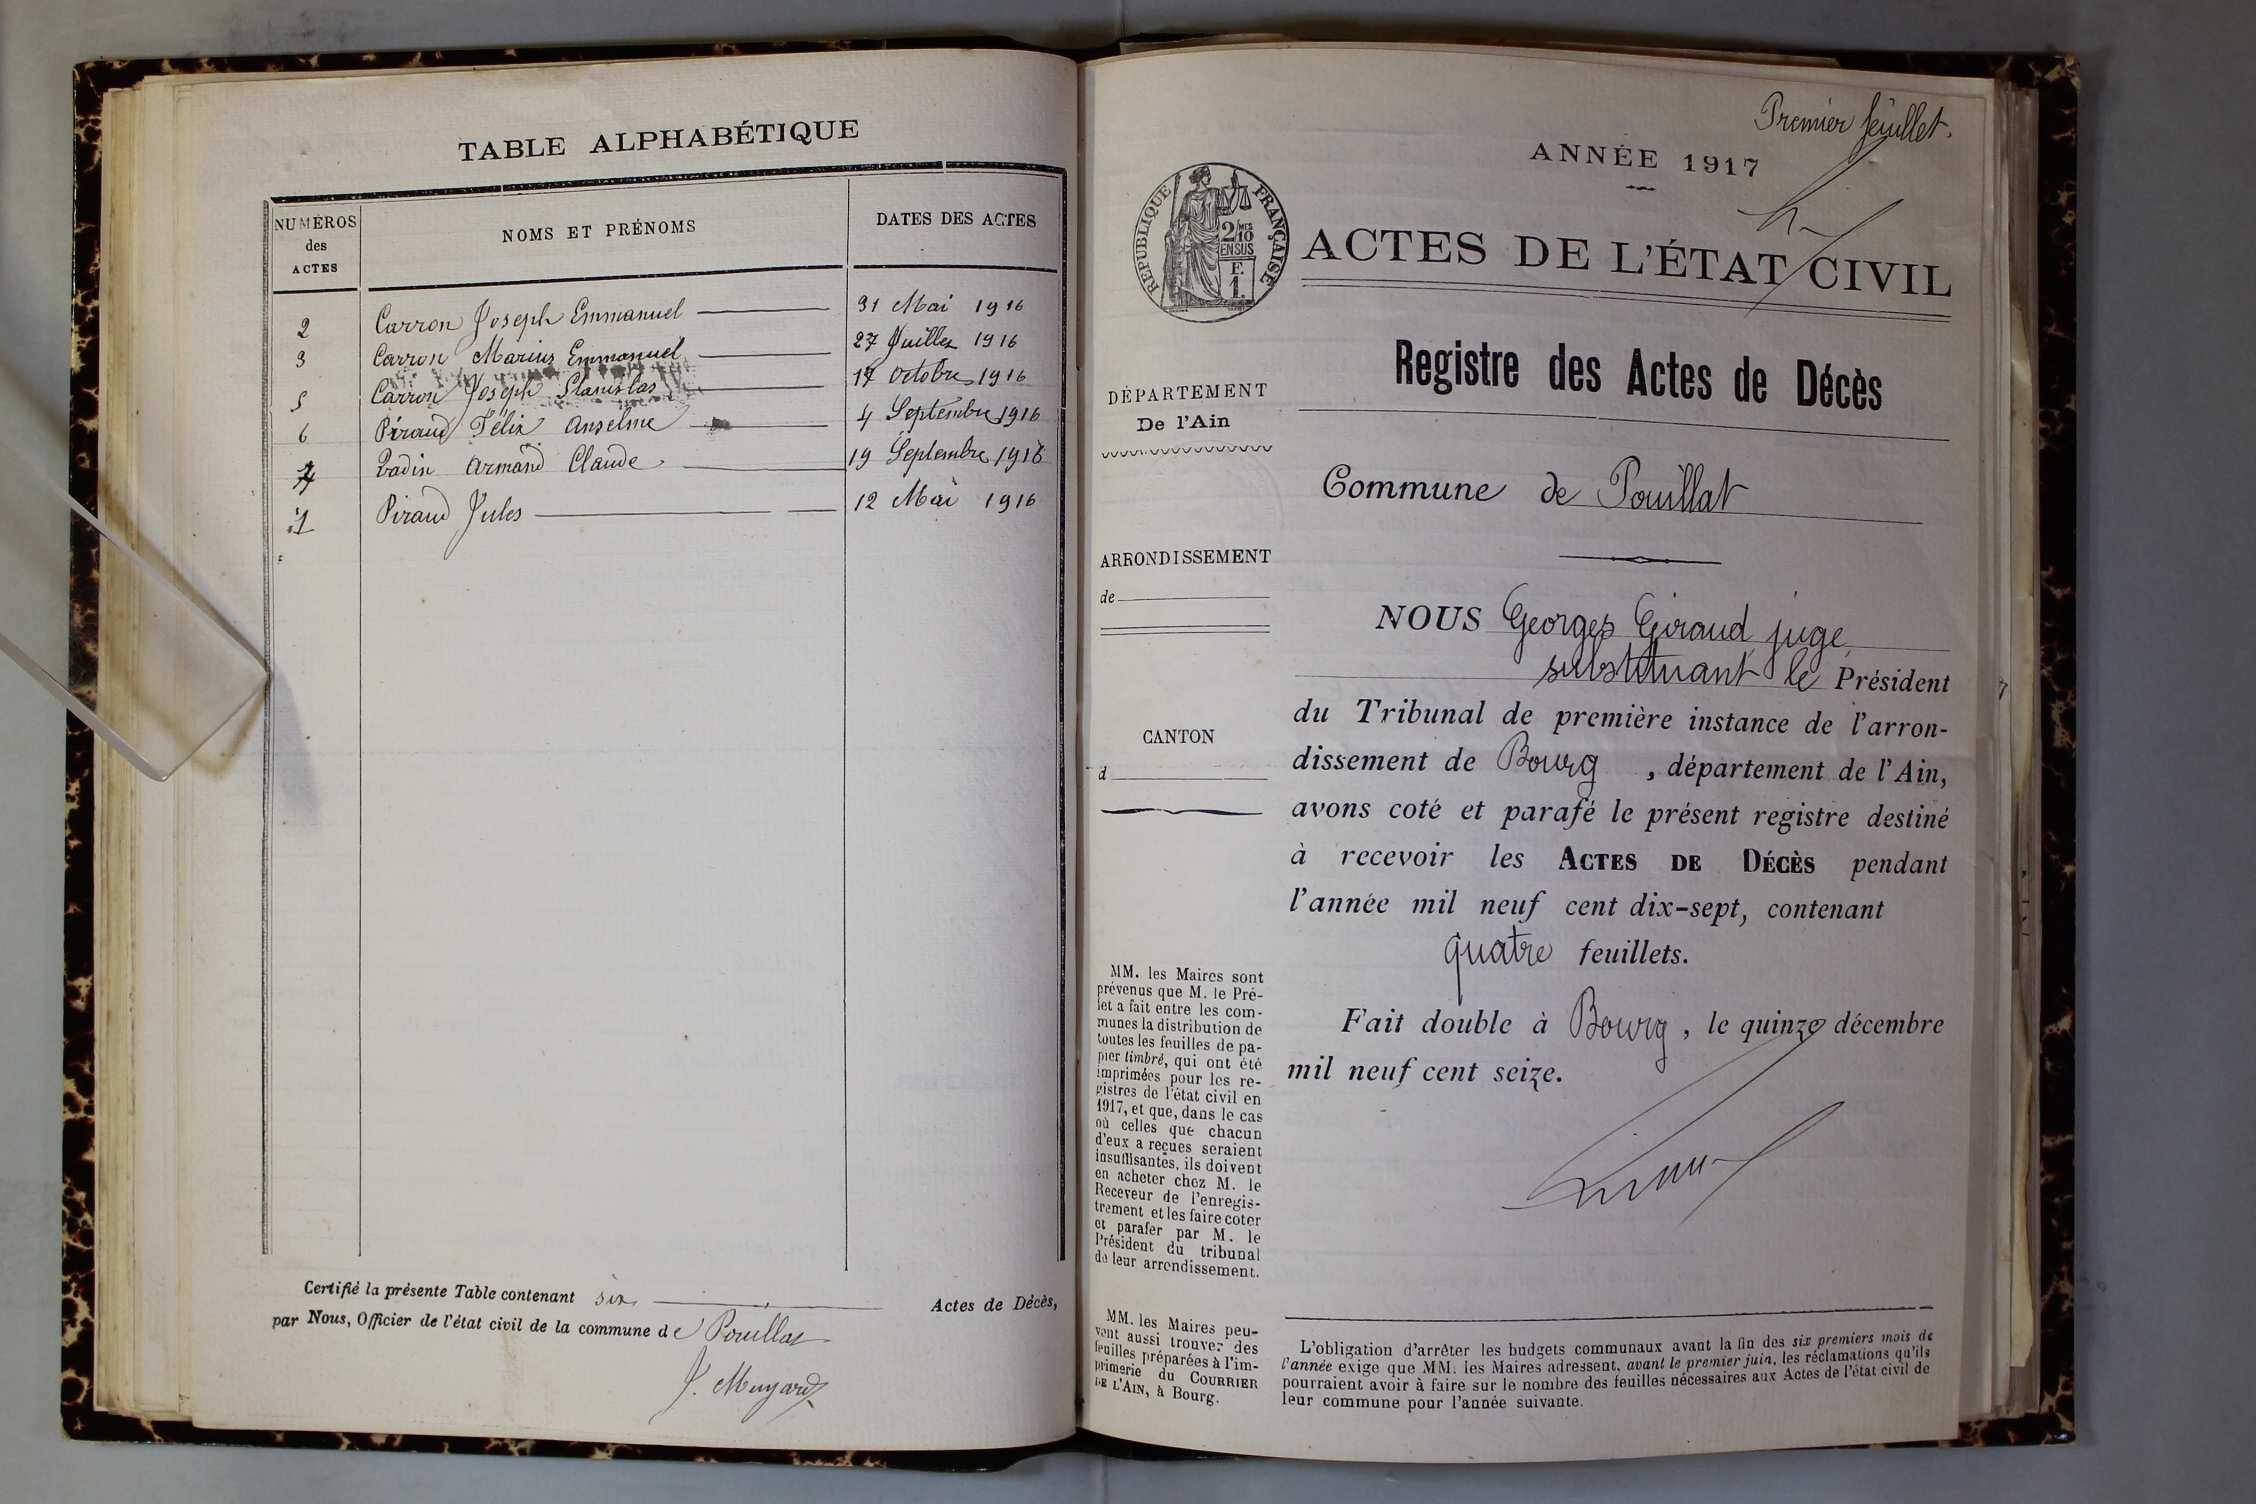 TABLE ALPHABÉTIQUE
NUMÉROS
des
ACTES
NOMS ET PRÉNOMS
DATES DES ACTES
2 Carron Joseph Emmanuel 31 Mai 1916
3 Carron Marius Emmanuel 27 Juillet 1916
5 Carron Joseph Stanislas 17 octobre 1916
6 Piraud Félix Anselme 4 Septembre 1916
7 Armand Claude 19 Septembre 1916
1 Piraud Jules 12 Mai 1916
Certifié la présente Table contenant six Actes de Décès,
par Nous, Officier de l'état civil de la commune de Pouillat
J. Muyard
Premier feuillet.
ANNÉE 1917
RÉPUBLIQUE FRANÇAISE
2/MES
10
EN SUS
F.
1.
ACTES DE L'ÉTAT CIVIL
Registre des Actes de Décès
DÉPARTEMENT
De l'Ain
Commune de Pouillat
ARRONDISSEMENT
de
CANTON
d
NOUS Georges Giraud juge
substituant le Président
du Tribunal de première instance de l'arron-
dissement de Bourg, département de l'Ain,
avons coté et parafé le présent registre destiné
à recevoir les ACTES DE DÉCÈS pendant
l'année mil neuf cent dix-sept, contenant
quatre feuillets.
Fait double à Bourg, le quinze décembre
mil neuf cent seize.
MM. les Maires sont
prévenus que M. le Pré-
fet a fait entre les com-
munes la distribution de
toutes les feuilles de pa-
pier timbré, qui ont été
imprimées pour les re-
gistres de l'état civil en
1917, et que, dans le cas
où celles que chacun
d'eux a reçues seraient
insuffisantes, ils doivent
en acheter chez M. le
Receveur de l'enregis-
trement et les faire coter
et parafer par M. le
Président du tribunal
de leur arrondissement.
MM. les Maires peu-
vent aussi trouver des
feuilles préparées à l'im-
primerie du COURRIER
DE L'AIN, à Bourg.
L'obligation d'arrêter les budgets communaux avant la fin des six premiers mois de
l'année exige que MM. les Maires adressent, avant le premier juin, les réclamations qu'ils
pourraient avoir à faire sur le nombre des feuilles nécessaires aux Actes de l'état civil de
leur commune pour l'année suivante.